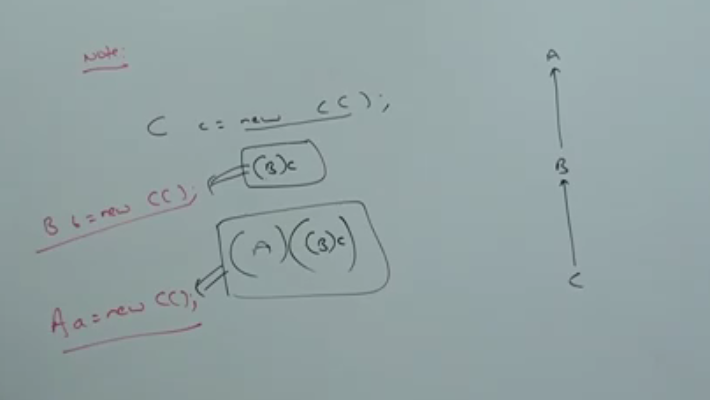 Note:
C c = new C();
(B)c
B b = new C();
(A)((B)c)
A a = new C();
A
B
C